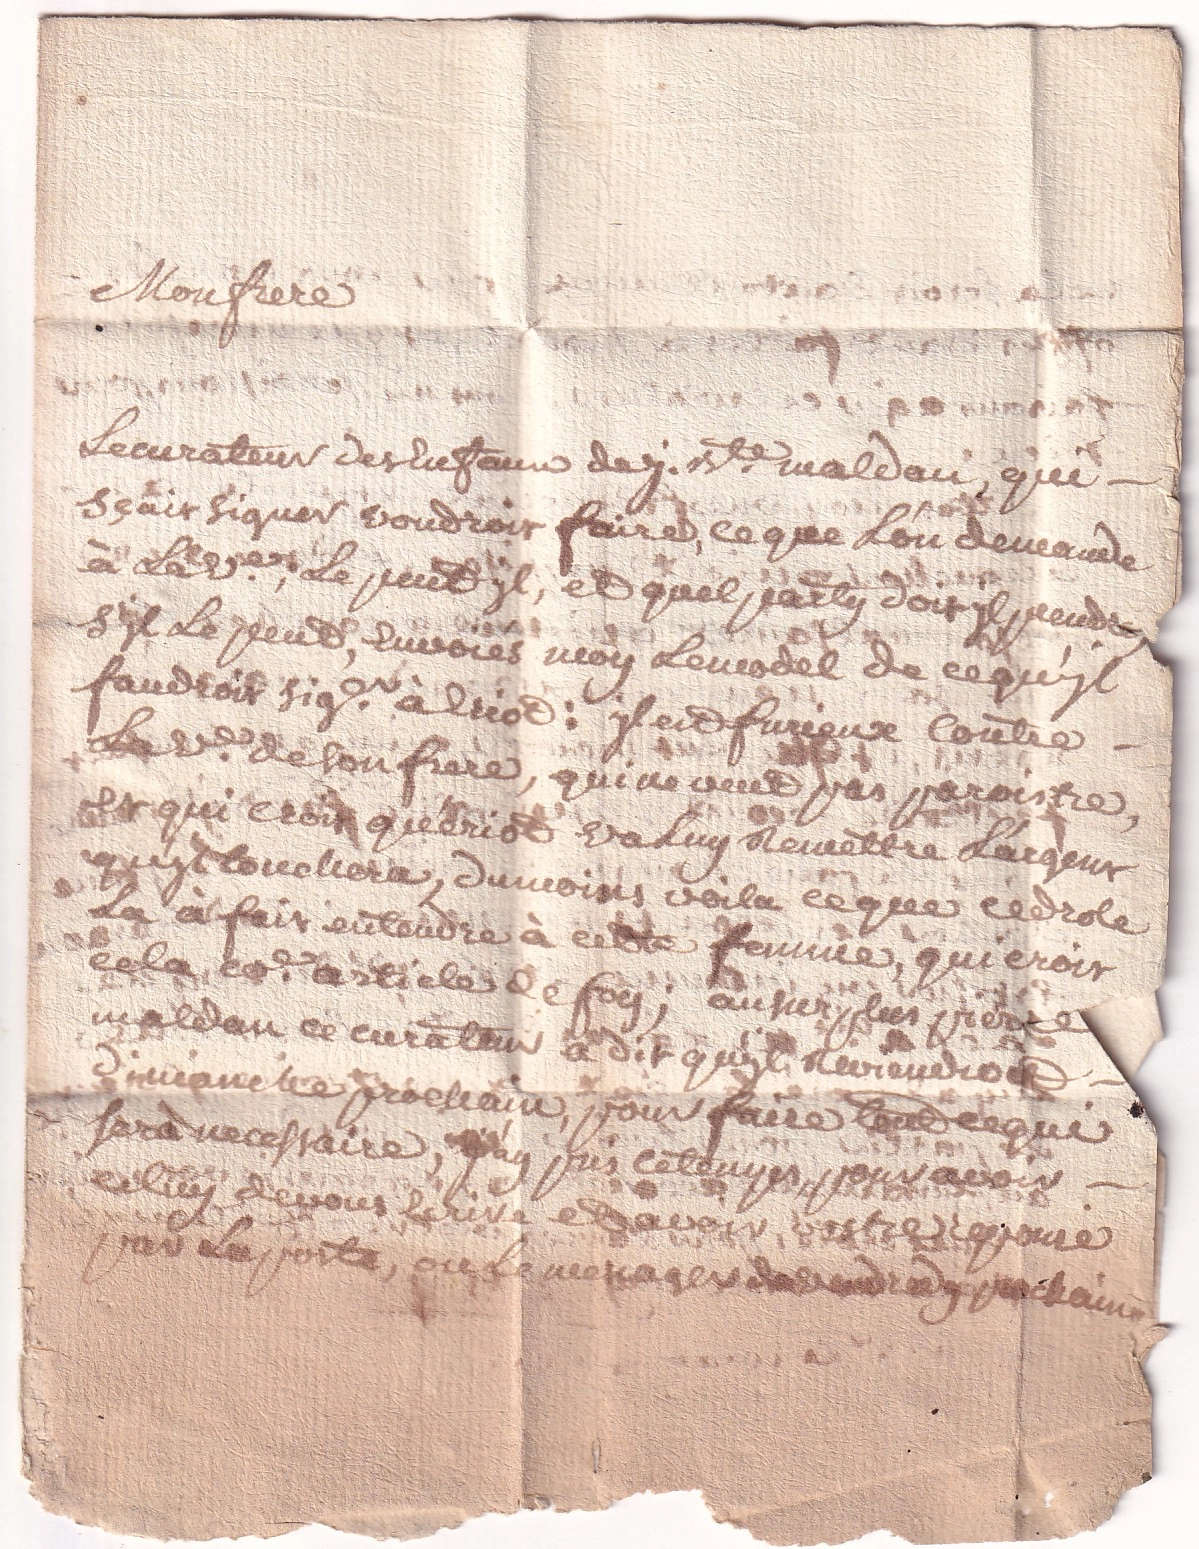 Mon frere
Le curateur des Enfans de j. Bte. maldan, qui -
sçait signer voudroit faire, ce que L'on demande
à La ve.er, Le peut jl, et quel party doit jl prendre,
s'jl Le peut, Envoiés moy Le model de ce qu'jl
faudroit sig.er à Eriot: jl est furieux contre -
La ve. de son frere, qui ne veut pas paroistre,
Et qui croit qu'Eriot va Luy Remettre L'argent
qu'jl touchera, du moins voila ce que ce drole
La à fait entendre à cette femme, qui croit
cela co.e article de foy; au surplus pierre
maldan ce curateur a dit qu'jl Reviendroit -
dimanche prochain, pour faire tout ce qui
sera necessaire, j'ay pris ce temps, pour avoir -
celuy de vous Ecrire et d'avoir vostre reponse
par La poste, ou Le messager de vendredy prochain